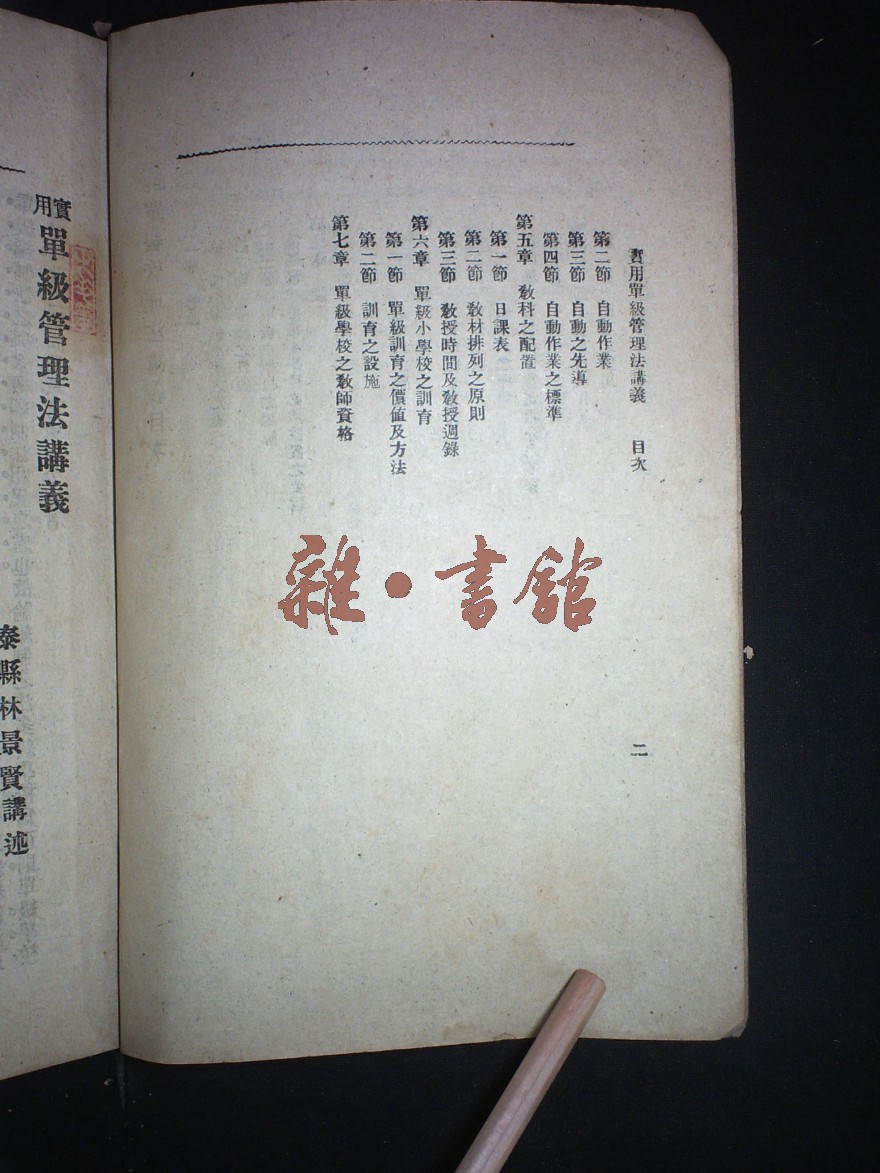 實用單級管理法講義　目次
二
第二節　自動作業
第三節　自動之先導
第四節　自動作業之標準
第五章　教科之配置
第一節　日課表
第二節　教材排列之原則
第三節　教授時間及教授週錄
第六章　單級小學校之訓育
第一節　單級訓育之價值及方法
第二節　訓育之設施
第七章　單級學校之教師資格
雜·書館
實用單級管理法講義
泰縣林景賢講述